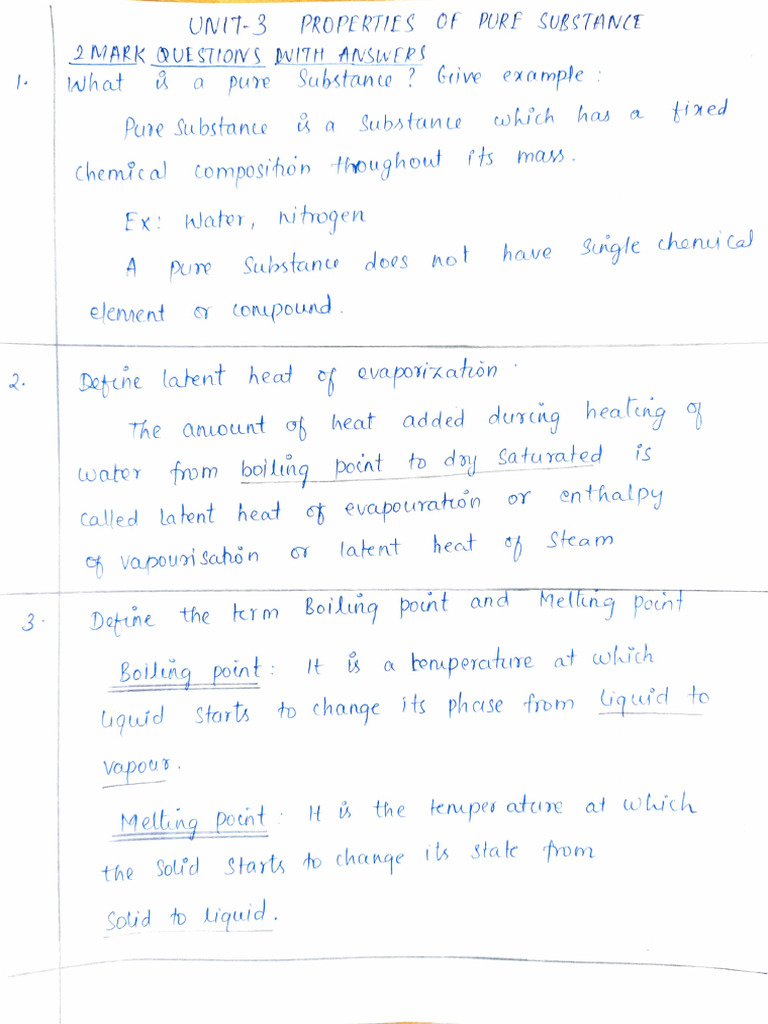 UNIT-3 PROPERTIES OF PURE SUBSTANCE
2 MARK QUESTIONS WITH ANSWERS
1. What is a pure Substance? Give example:
Pure Substance is a substance which has a fixed
chemical composition thoughout its mass.
Ex: Water, nitrogen
A pure substance does not have single chemical
element or compound.
2. Define latent heat of evaporization.
The amount of heat added during heating of
water from boiling point to dry saturated is
called latent heat of evapouration or enthalpy
of vapourisation or latent heat of steam
3. Define the term Boiling point and Melting point
Boiling point: It is a temperature at which
liquid starts to change its phase from liquid to
vapour.
Melting point: It is the temperature at which
the solid starts to change its state from
solid to liquid.